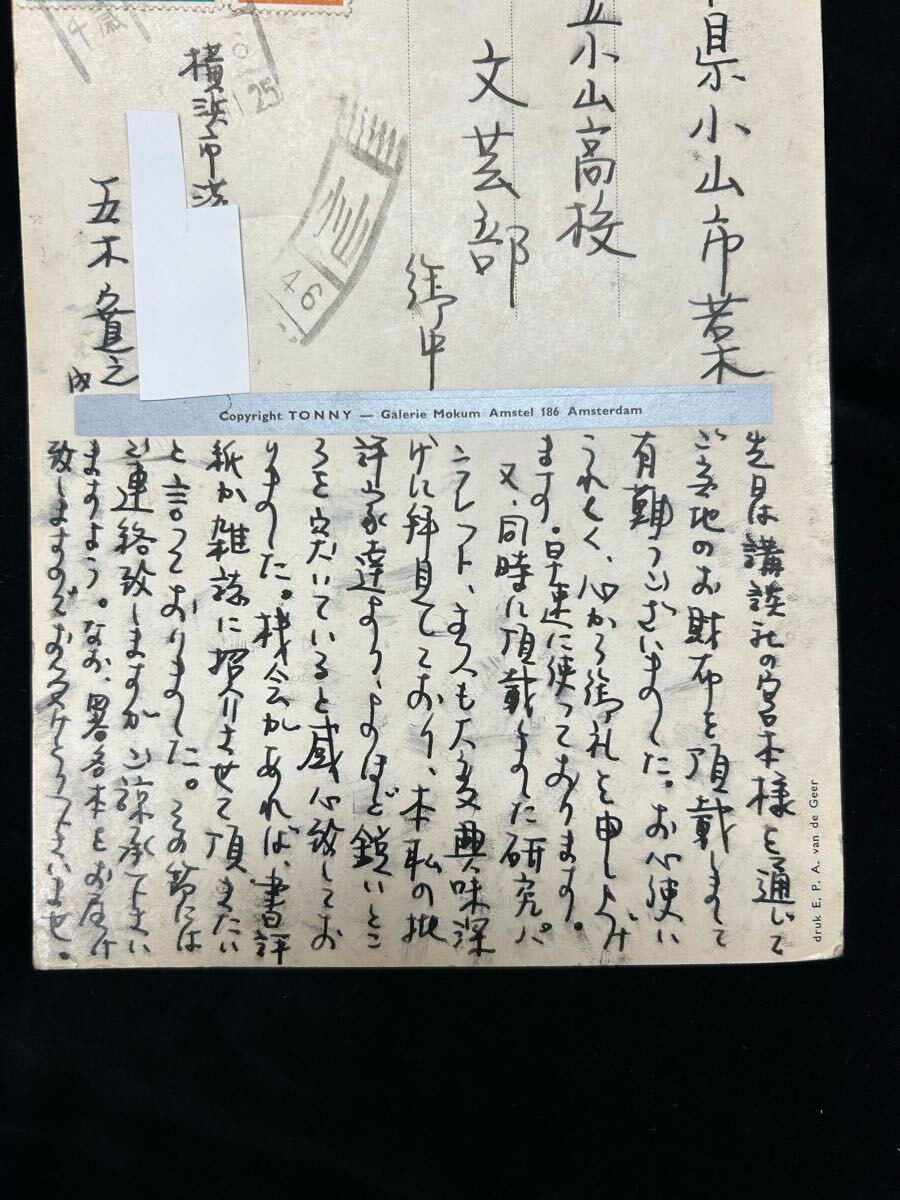 県小山市若木
立小山高校
文芸部
御中
横浜市
五木寛之
25
46
Copyright TONNY — Galerie Mokum Amstel 186 Amsterdam
先日は講談社の宮本様を通じて
ご当地のお財布を頂戴しまして
有難うございました。お心使い
うれしく、心から御礼を申し上げ
ます。早速に使っております。
又、同時に頂戴しました研究パ
ンフレット、まことも大変興味深
げに拝見しており、本職の批
評家達より、よほど鋭いとこ
ろを突いていると感心致してお
りました。機会があれば、書評
紙か雑誌に紹介させて頂きたい
と言っておりました。その節には
ご連絡致しますがご諒承下さい
ますよう。なお、署名本をお届け
致しますのでお受けとり下さいませ。
druk E. P. A. van de Geer